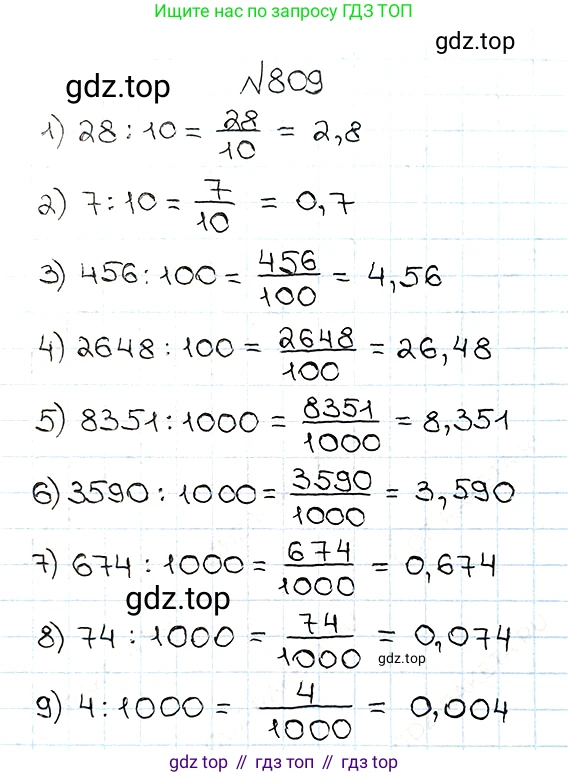 Ищите нас по запросу ГДЗ ТОП
gdz.top
gdz.top
№809
1) 28 : 10 = 28/10 = 2,8
2) 7 : 10 = 7/10 = 0,7
3) 456 : 100 = 456/100 = 4,56
4) 2648 : 100 = 2648/100 = 26,48
5) 8351 : 1000 = 8351/1000 = 8,351
6) 3590 : 1000 = 3590/1000 = 3,590
7) 674 : 1000 = 674/1000 = 0,674
gdz.top
8) 74 : 1000 = 74/1000 = 0,074
gdz.top
9) 4 : 1000 = 4/1000 = 0,004
gdz top // гдз топ // гдз top